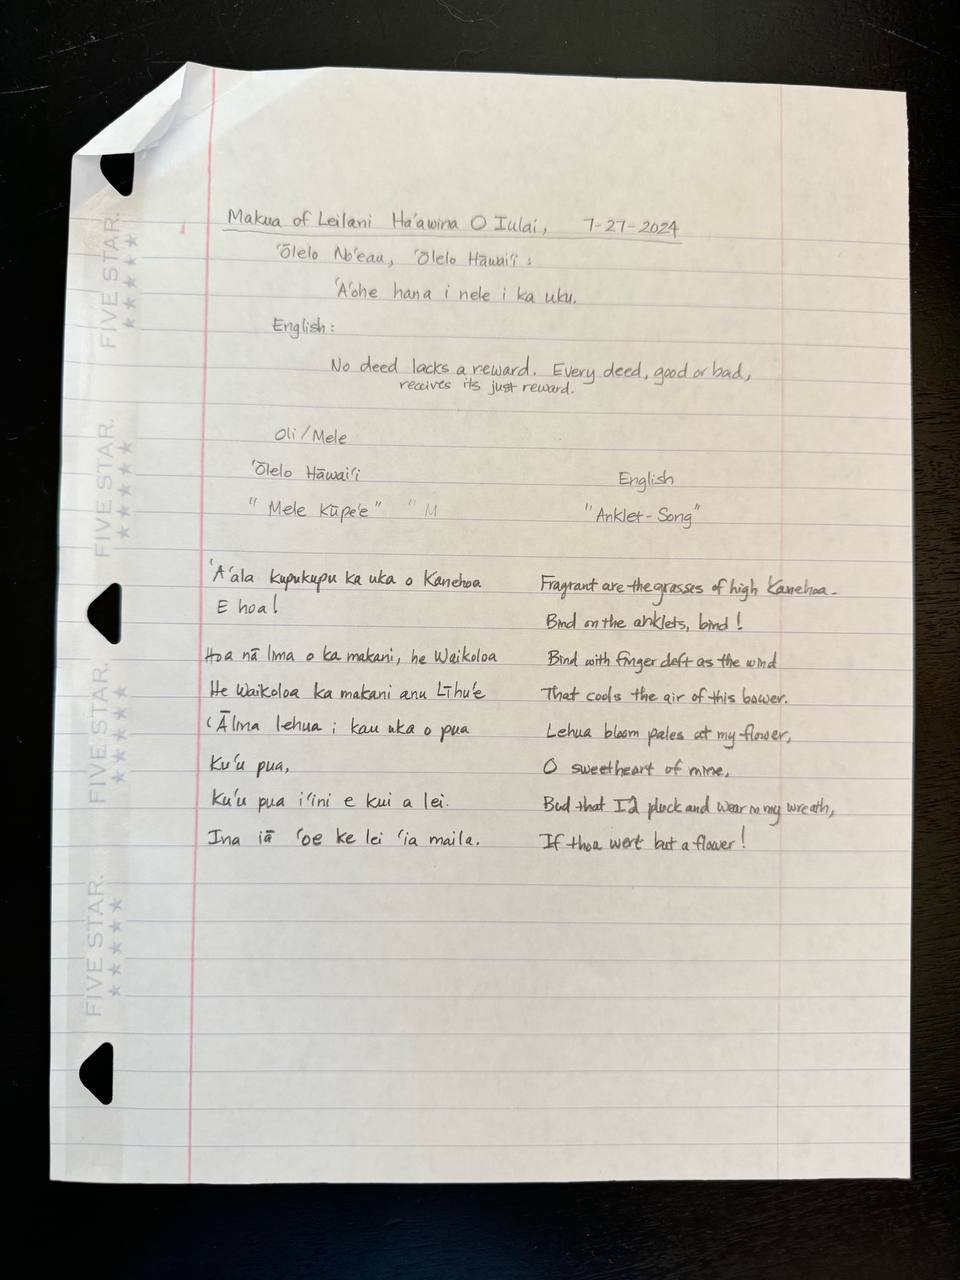 Makua of Leilani Ha'awina O Iulai, 7-27-2024
'Ōlelo No'eau, 'Ōlelo Hāwai'i:
'A'ohe hana i nele i ka uku.
English:
No deed lacks a reward. Every deed, good or bad,
receives its just reward.
Oli/Mele
'Ōlelo Hāwai'i
English
"Mele Kūpe'e" "M
"Anklet-Song"
'A'ala kupukupu ka uka o Kanehoa
Fragrant are the grasses of high Kanehoa.
E hoa!
Bind on the anklets, bind!
Hoa nā lima o ka makani, he Waikoloa
Bind with finger deft as the wind
He Waikoloa ka makani anu Līhu'e
That cools the air of this bower.
'Ālina lehua i kau uka o pua
Lehua bloom pales at my flower,
Ku'u pua,
O sweetheart of mine,
Ku'u pua i'ini e kui a lei.
Bud that I'd pluck and wear in my wreath,
Ina iā 'oe ke lei 'ia maila.
If thou wert but a flower!
FIVE STAR.
FIVE STAR.
FIVE STAR.
FIVE STAR.